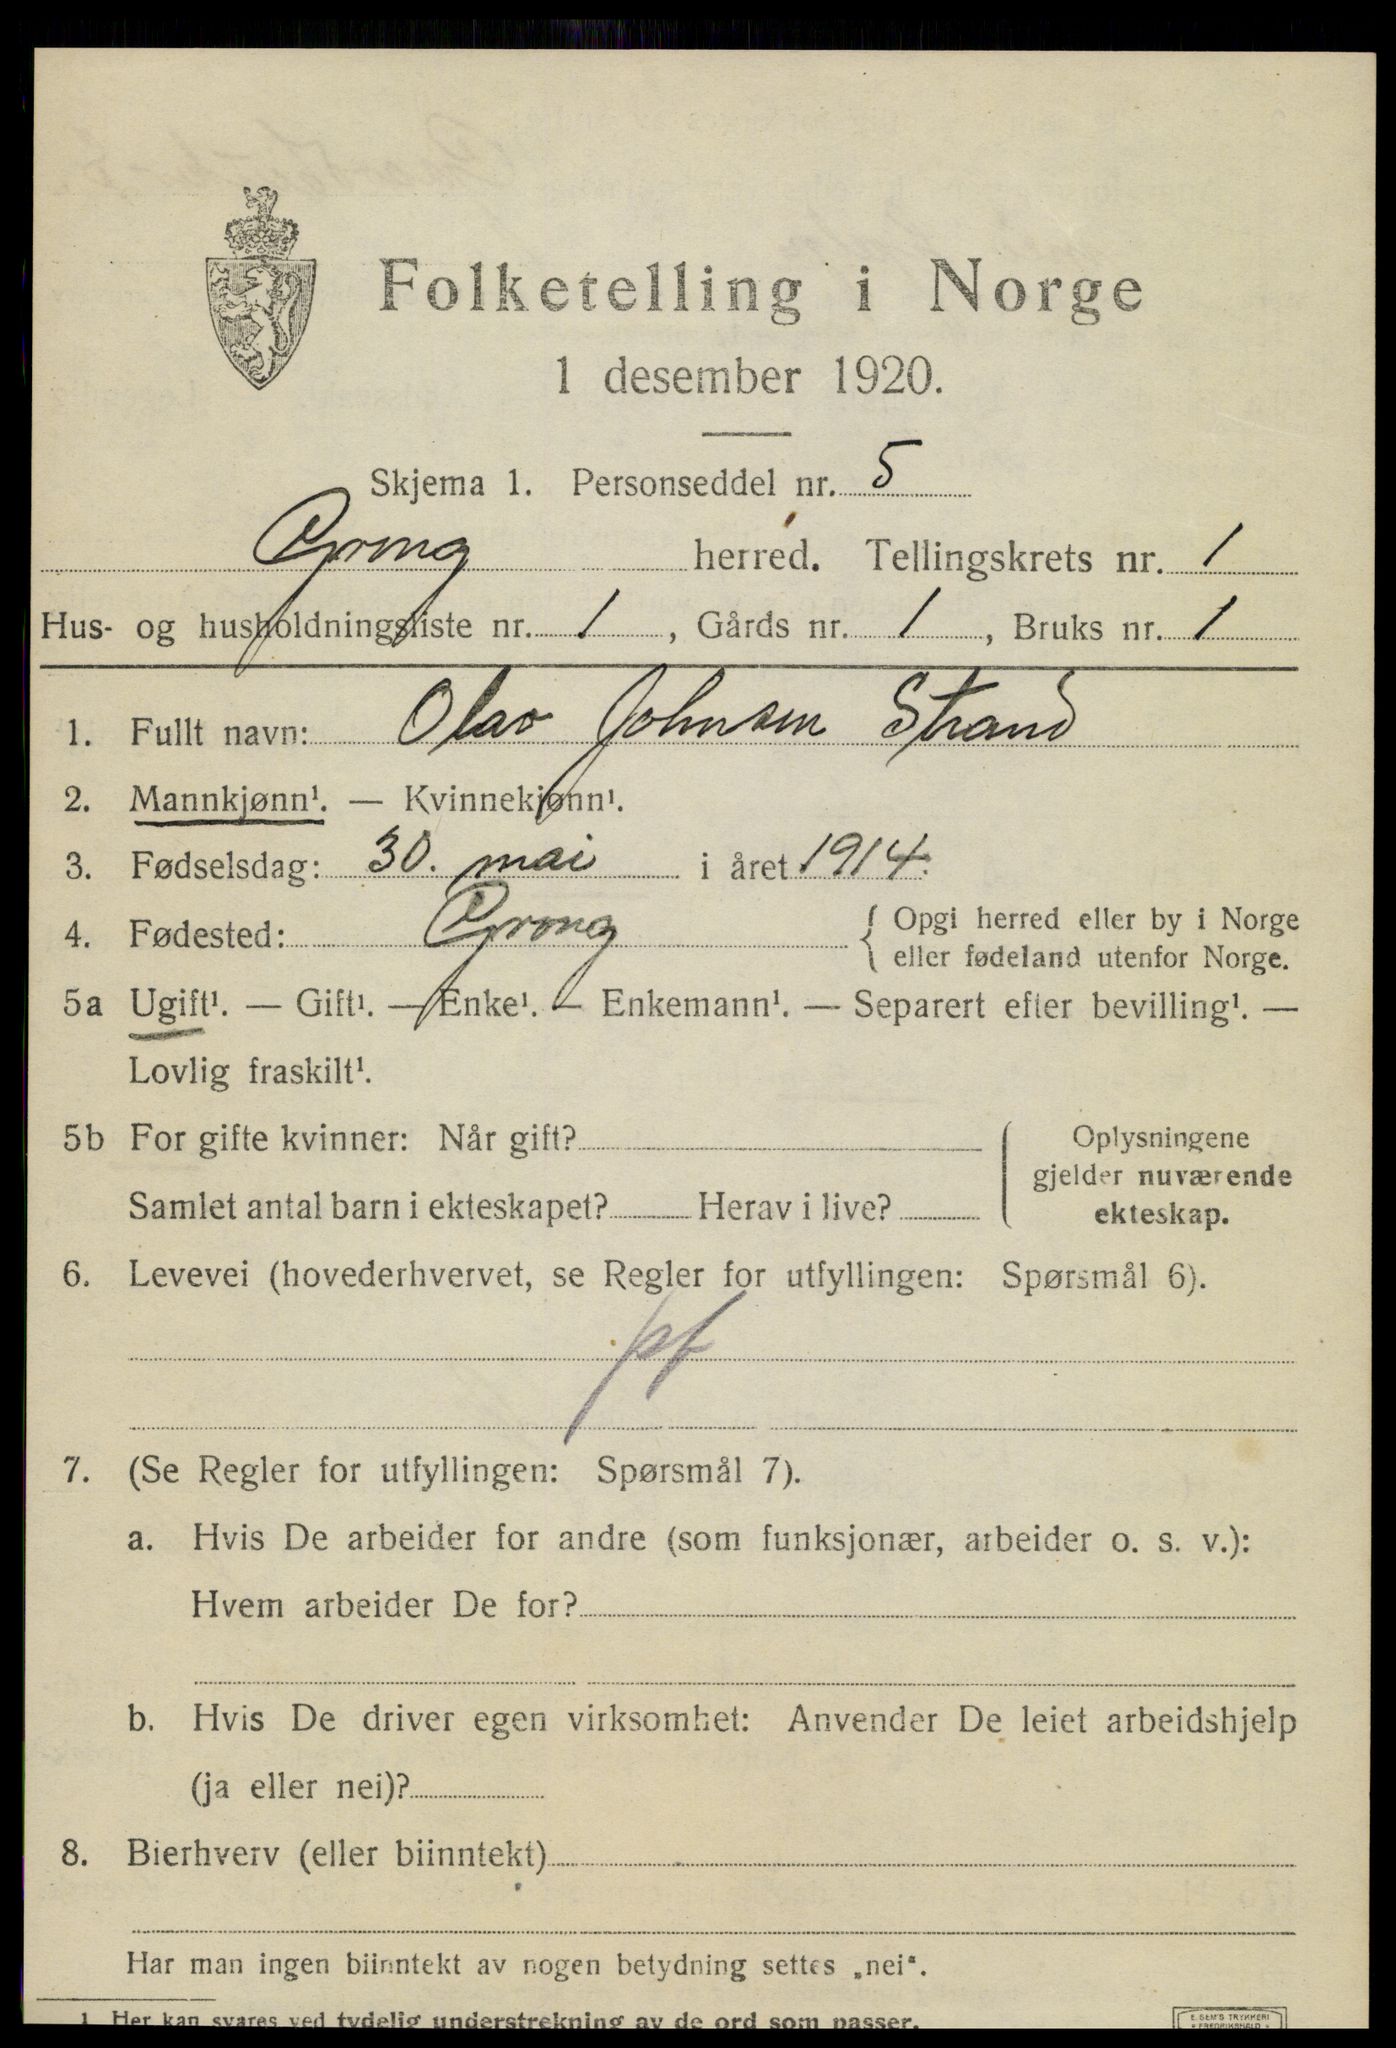 Folketelling i Norge
1 desember 1920.
Skjema 1. Personseddel nr. 5
Grong herred. Tellingskrets nr. 1
Hus- og husholdningsliste nr. 1, Gårds nr. 1, Bruks nr. 1
1. Fullt navn: Olav Johnsen Strand
2. Mannkjønn¹. — Kvinnekjønn¹.
3. Fødselsdag: 30. mai i året 1914.
4. Fødested: Grong { Opgi herred eller by i Norge
eller fødeland utenfor Norge.
5a Ugift¹. — Gift¹. — Enke¹. — Enkemann¹. — Separert efter bevilling¹. —
Lovlig fraskilt¹.
5b For gifte kvinner: Når gift?
Samlet antal barn i ekteskapet? Herav i live?
Oplysningene
gjelder nuværende
ekteskap.
6. Levevei (hovederhvervet, se Regler for utfyllingen: Spørsmål 6).
pf
7. (Se Regler for utfyllingen: Spørsmål 7).
a. Hvis De arbeider for andre (som funksjonær, arbeider o. s. v.):
Hvem arbeider De for?
b. Hvis De driver egen virksomhet: Anvender De leiet arbeidshjelp
(ja eller nei)?
8. Bierhverv (eller biinntekt)
Har man ingen biinntekt av nogen betydning settes „nei“.
1. Her kan svares ved tydelig understrekning av de ord som passer.
E. SEM'S TRYKKERI
FREDRIKSHALD